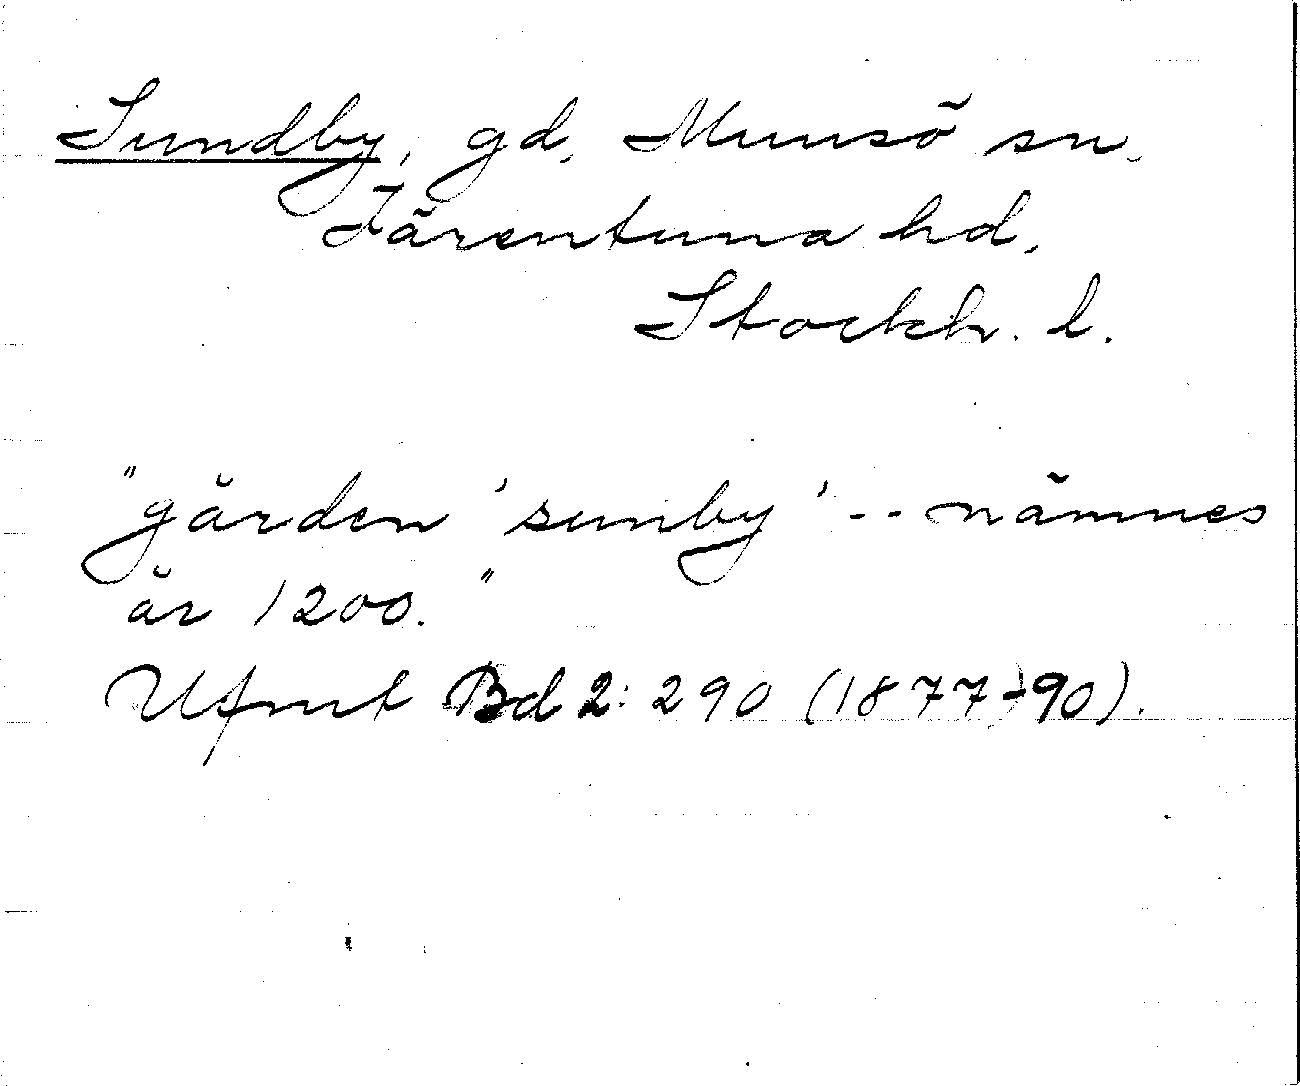 Sundby, gd, Munsö sn,
Färentuna hd,
Stockh. l.
"gården 'sunby' -- nämnes
år 1200."
Ufmt Bd 2: 290 (1877-90).